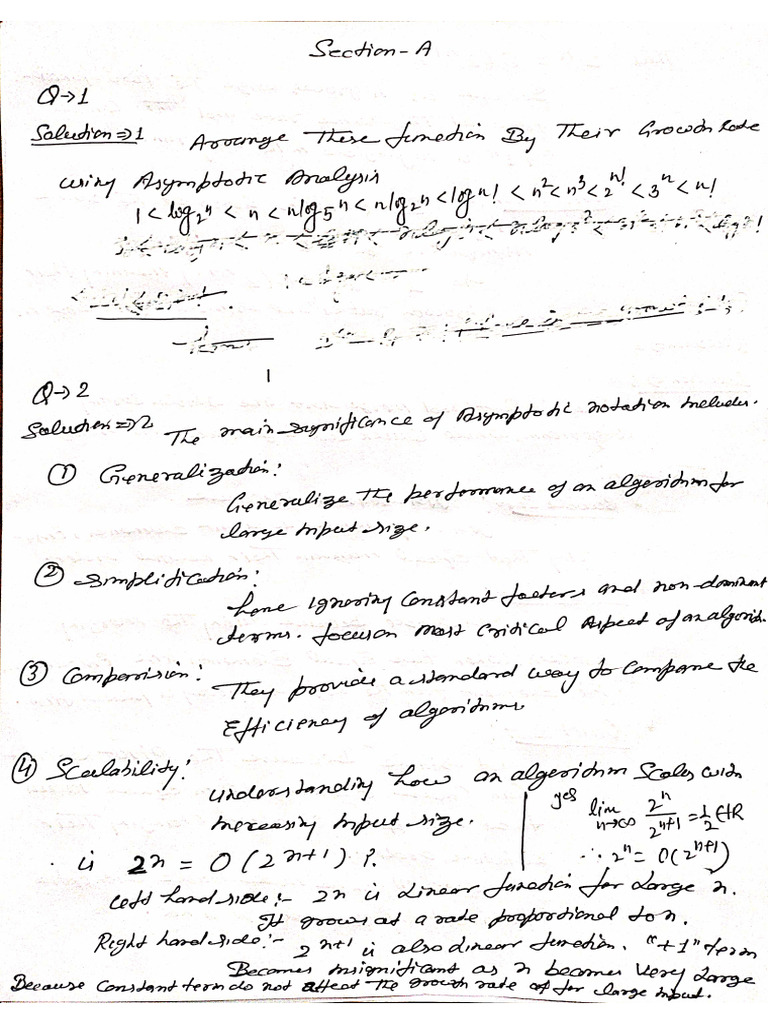 Section-A
Q→1
Solution⇒1 Arrange These function By Their Growth Rate
using Asymptotic Analysis
1 < log₂n < n < nlog₅n < nlog₂n < logn! < n² < n³ < 2ⁿ! < 3ⁿ < n!
Q→2
Solution⇒2 The main significance of Asymptotic notation includes.
① Generalization:
Generalize the performance of an algorithm for
large input size.
② Simplification:
here ignoring Constant factors and non-dominant
terms. focus on most critical Aspect of an algorith.
③ Comparision:
They provide a standard way to Compare the
Efficiency of algorithms
④ Scalability:
understanding how an algorithm Scales with
increasing input size.
is 2n = O(2n+1) ?.
yes lim n→∞ 2ⁿ/2ⁿ⁺¹ = 1/2 ∈ R
∴ 2ⁿ = O(2ⁿ⁺¹)
Left hand side:- 2n is Linear function for Large n.
It grows at a rate proportional to n.
Right hand side:- 2n+1 is also linear function. "+1" term
Becomes insignificant as n becomes Very Large
Because Constant term do not affect the growth rate of for large input.